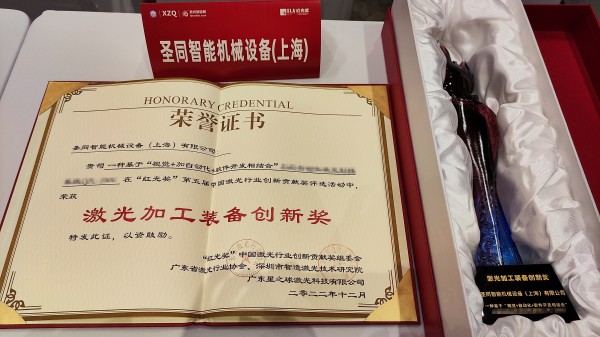 XZQ
圣同智能机械设备(上海)
HONORARY CREDENTIAL
荣誉证书
圣同智能机械设备（上海）有限公司
贵司 一种基于“视觉+加自动化+软件开发相结合”
在“红光奖”第五届中国激光行业创新贡献奖评选活动中，
荣获
激光加工装备创新奖
特发此证，以资鼓励。
“红光奖”中国激光行业创新贡献奖组委会
广东省激光行业协会、深圳市智造激光技术研究院
广东星之球激光科技有限公司
二〇二二年十二月
激光加工装备创新奖
圣同智能机械设备（上海）有限公司
一种基于“视觉+自动化+软件开发相结合”